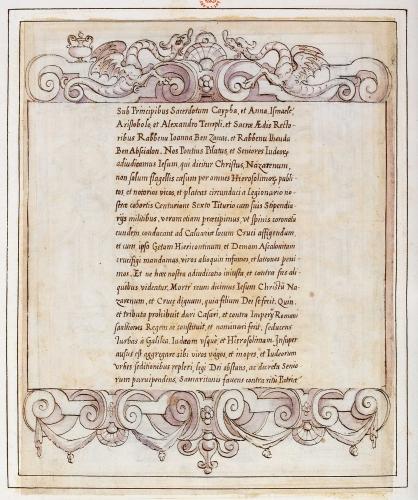 Sub Principibus Sacerdotum Caypha, et Anna, Ismaele,
Aristobolo, et Alexandro Templi, et Sacræ Ædis Recto-
ribus Rabbenu Ioanna Ben Zacai, et Rabbenu Iheuda
Ben Abscialon. Nos Pontius Pilatus, et Seniores Iudeor,
adiudicamus Iesum, qui dicitur Christus, Nazarenum,
non solum flagellis cæsum per omnes Hierosolimor, publi-
cos, et notorios vicos, et plateas circunduci a legionario no-
stræ cohortis Centurione Sexto Titurio cum suis Stipendia-
rijs militibus, verum etiam præcipimus, ut spinis coronatu
eundem conducant ad Calvariæ locum Cruci affigendum,
et cum ipso Getam Hiericontinum et Demam Ascalonitam
crucifigi mandamus, viros alioquin infames, et latrones pessi-
mos. Et ne hæc nostra adiudicatio iniusta, et contra fas ali-
quibus videatur, Morte reum dicimus Iesum Christũ Na-
zarenum, et Cruce dignum, quia filium Dei se fecit. Quin,
et tributa prohibuit dari Cæsari, et contra Imperÿ Romani
sanctiones Regem se constituit, et nominari fecit, seducens
turbas à Galilea Iudæam usque, et Hierosolimam. Insuper
ausus est aggregare sibi viros vagos, et inopes, et Iudeorum
urbes seditionibus repleri, legi Dei obstans, ac decreta Senio
rum parvipendens, Samaritanis favens contra ritũ Patriæ